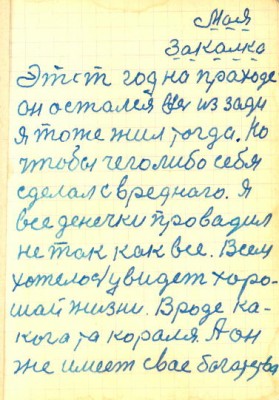 Моя
Закалка
Этот год на праходе
он остался из зади
я тоже жил тогда. Но
чтобы чего либо себя
сделал с вреднаго. Я
все денечки провадил
не так как все. Всем
хотелось увидет хоро-
шай жизни. Вроде ка-
кога та кораля. А он
же имеет свае богатства